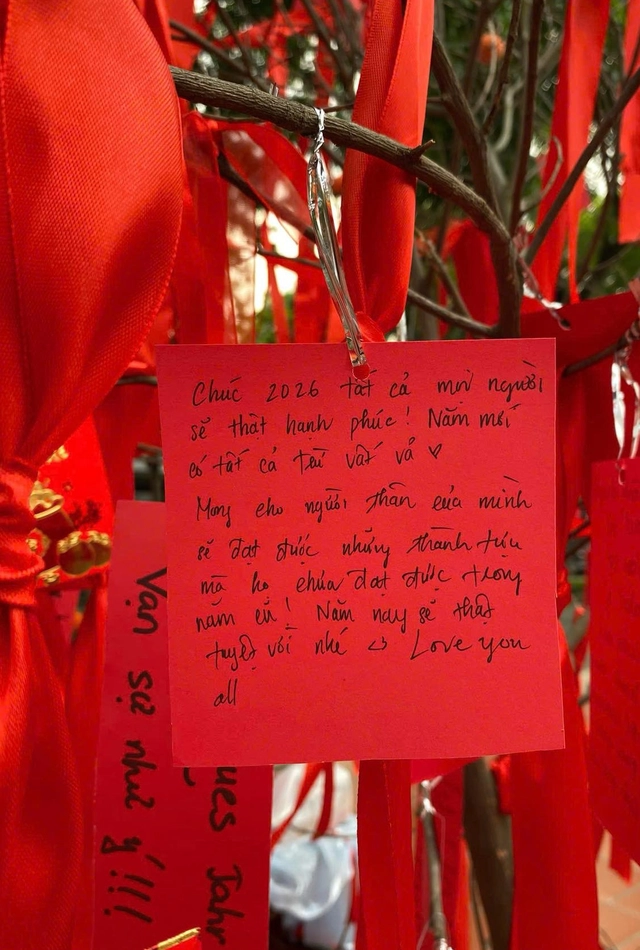 Chúc 2026 tất cả mọi người
sẽ thật hạnh phúc! Năm mới
có tất cả trừ vất vả ♡
Mong cho người thân của mình
sẽ đạt được những thành tựu
mà họ chưa đạt được trong
năm cũ! Năm nay sẽ thật
tuyệt vời nhé <3 Love you
all
Vạn sự như ý!!!
ues Jahr